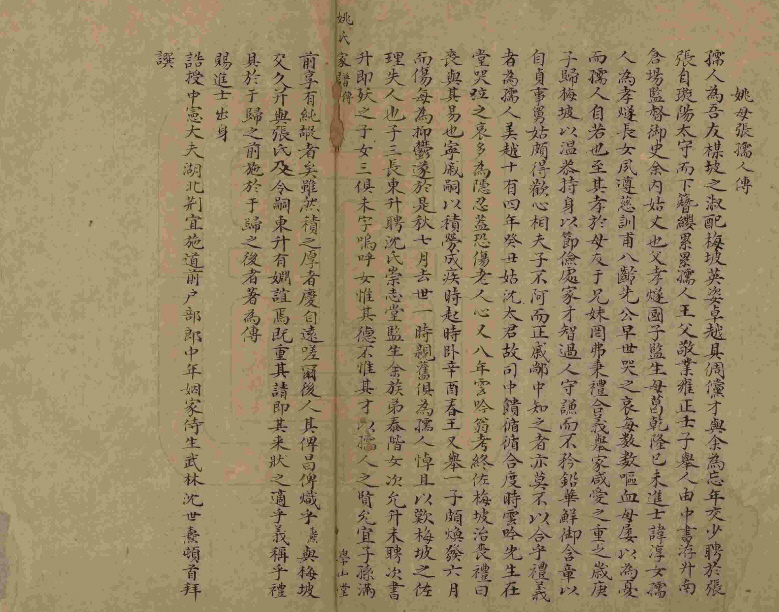 姚母張孺人傳
孺人為吾友楳坡之淑配梅坡英姿卓越具倜儻才與余為忘年交少聘於張
張自璇陽太守而下簪纓累累孺人王父敬業雍正壬子舉人由中書洊升南
倉場監督御史余內姑丈也父孝燧國子監生母葛乾隆己未進士諱淳女孺
人為孝燧長女夙遵慈訓甫八齡失公早世哭之哀每數數嘔血母屢以為憂
而孺人自若也至其孝於母友于兄妹罔弗秉禮合義舉家咸愛之重之歲庚
子歸梅坡以溫恭持身以節儉處家才智過人守謙而不矜鉛華鮮御含章以
自貞事舅姑頗得歡心相夫子不阿而正戚鄰中知之者亦莫不以合乎禮義
者為孺人美越十有四年癸丑姑沈太君故司中饋脩脩合度時雲吟先生在
堂哭泣之哀多為隱忍蓋恐傷老人心又八年雲吟翁考終佐梅坡治喪禮曰
喪與其易也寧戚嗣以積勞成疾時起時卧辛酉春王又舉一子頗煥發六月
而傷每為抑鬱遂於是秋七月去世一時親舊俱為孺人悼且以歎梅坡之佐
理失人也子三長東升聘沈氏崇志堂監生余族弟泰階女次允升未聘次書
升即殀之子女三俱未字嗚呼女惟其德不惟其才以孺人之賢允宜子孫滿
姚氏家譜傳
舉山堂
前享有純嘏者矣雖然積之厚者慶自遠嗟爾後人其俾昌俾熾乎燾與梅坡
交久並與張氏及令嗣東升有姻誼焉既重其請即其來狀之適乎義稱乎禮
具於于歸之前施於于歸之後者著為傳
賜進士出身
誥授中憲大夫湖北荆宜施道前戶部郎中年姻家侍生武林沈世燾頓首拜
譔